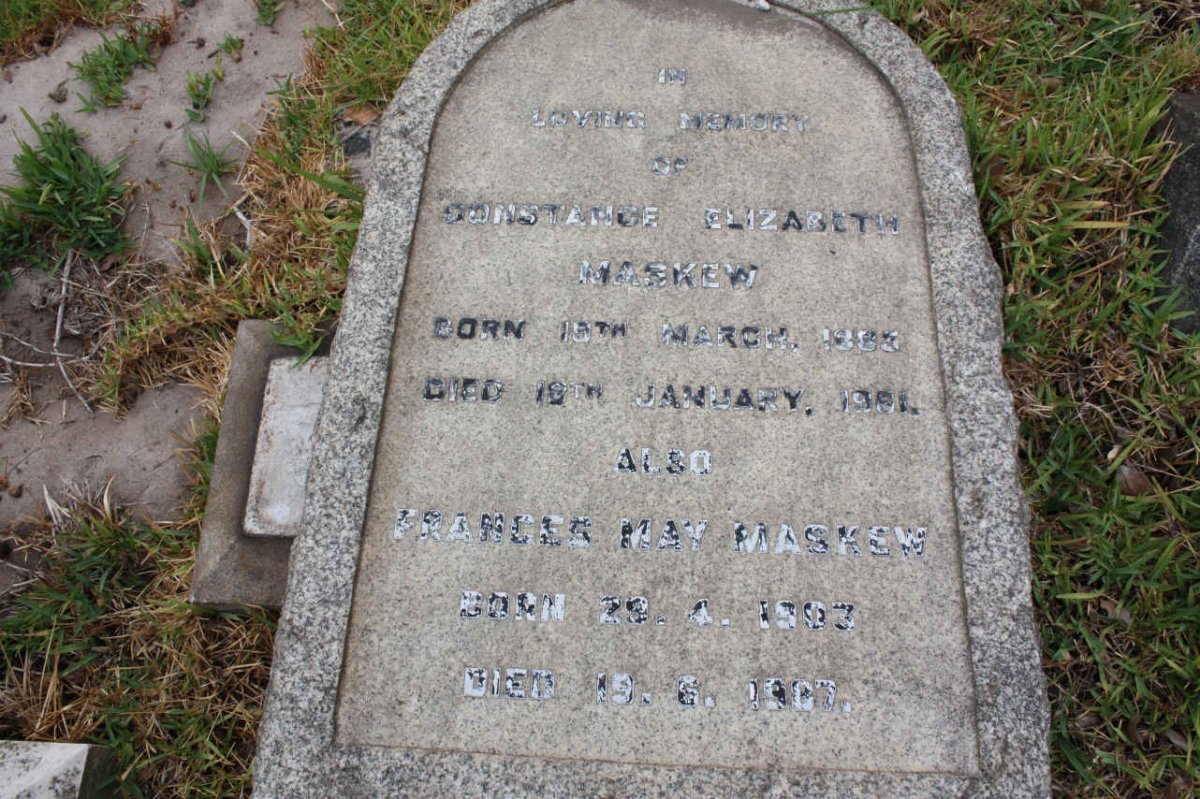 IN
LOVING MEMORY
OF
CONSTANCE ELIZABETH
MASKEW
BORN MARCH,
DIED 19TH JANUARY,
ALSO
FRANCES MAY MASKEW
BORN 29. 4. 1903
DIED 19. 6.